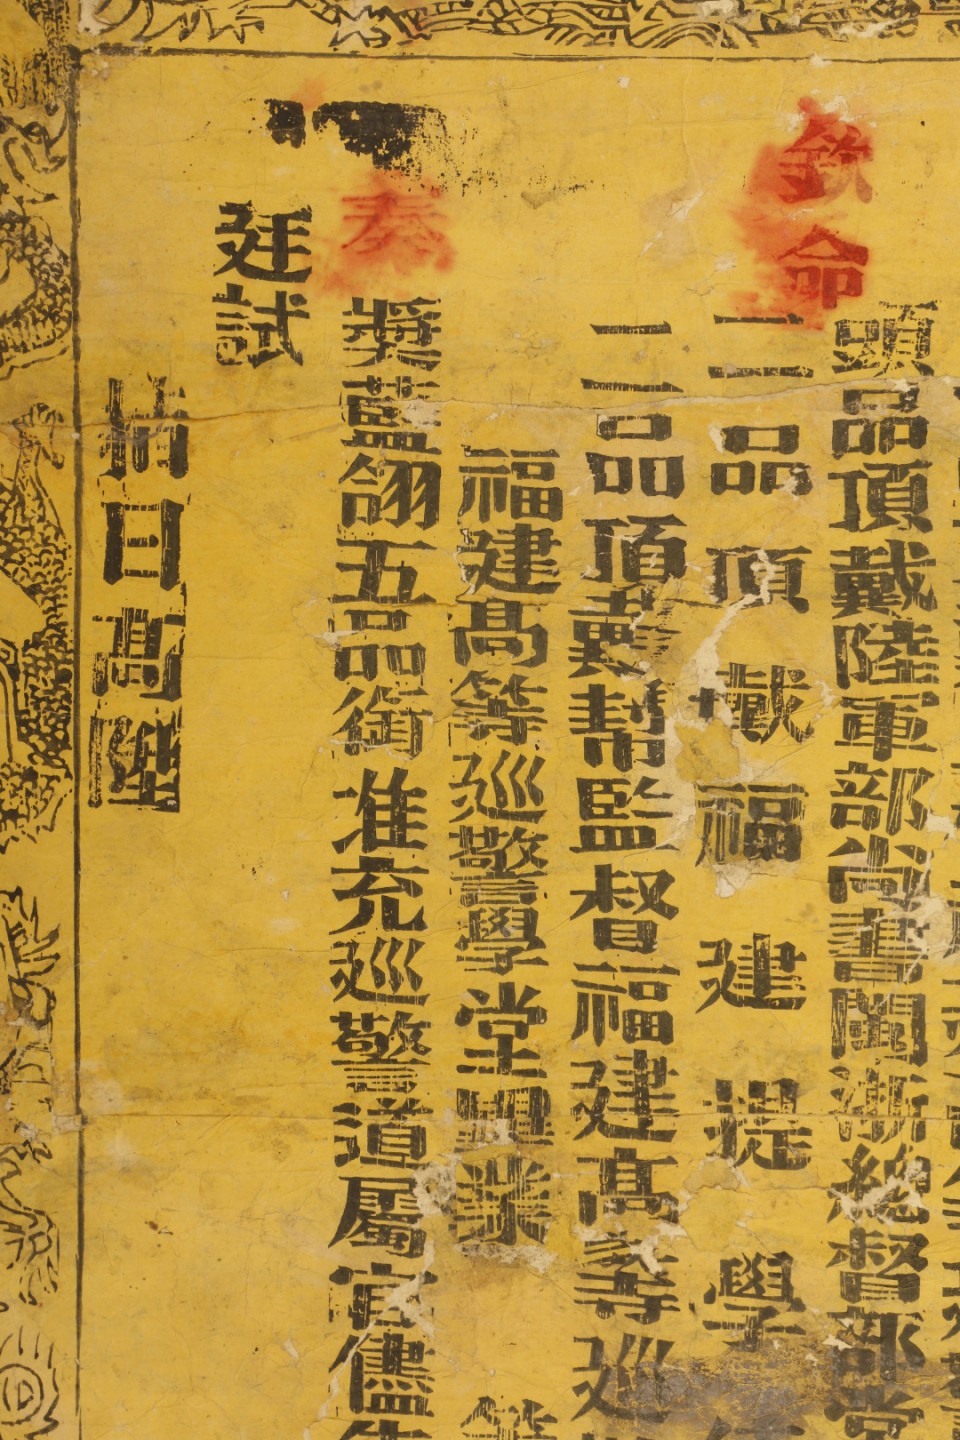 欽命
頭品頂戴陸軍部尚書閩浙總督部堂
二品頂戴福建提學
二品頂戴幫監督福建高等巡
福建高等巡警學堂畢業
奏
獎藍翎五品銜准充巡警道屬官儘先
廷試
指日高陞